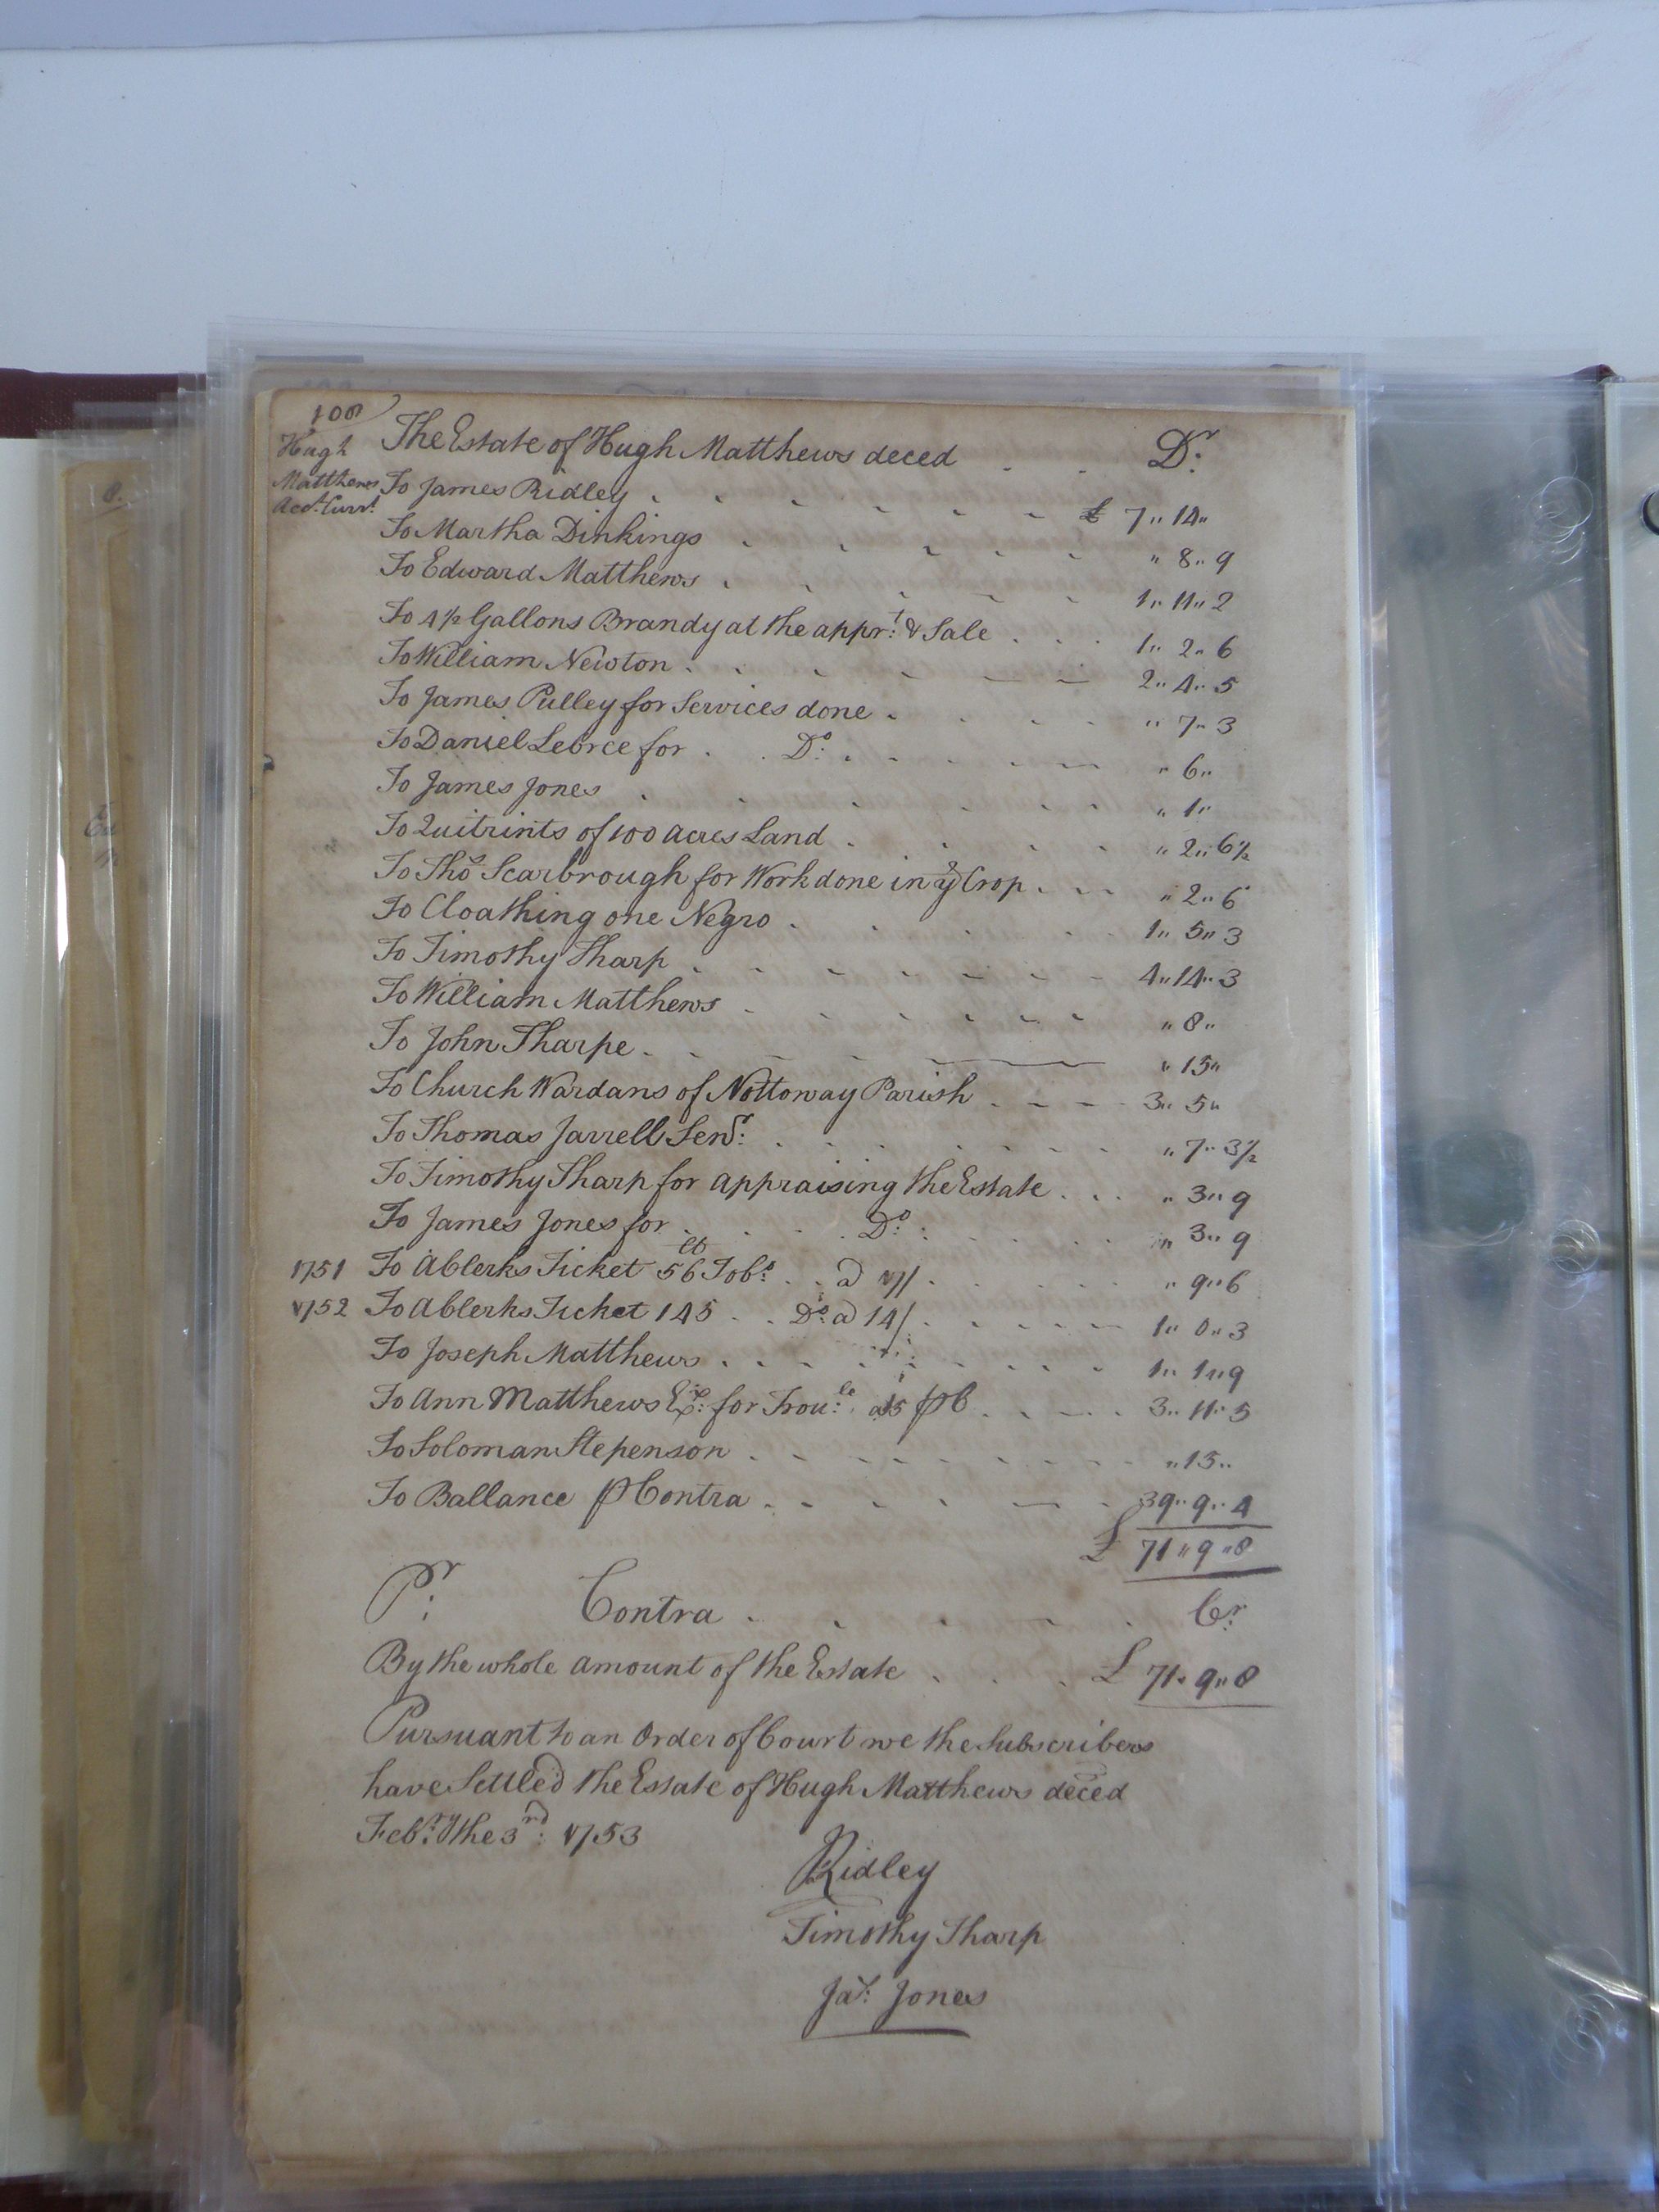 108
Hugh
Matthews
Acct. Currt.
The Estate of Hugh Matthews deced . . Dr.
To James Ridley . . . . . . £ 7,, 14,,
To Martha Dinkings . . . . . ,, 8,, 9
To Edward Matthews . . . . . 1,, 11,, 2
To 4 1/2 Gallons Brandy at the apprt. & Sale . . . 1,, 2,, 6
To William Newton . . . . . . 2,, 4,, 5
To James Pulley for Services done . . . . ,, 7,, 3
To Daniel Lebrce for . . Do. . . . . ,, 6,,
To James Jones . . . . . . ,, 1,,
To Quitrints of 100 acres Land . . . . ,, 2,, 6 1/2
To Thos Scarbrough for Work done in ye Crop . . . ,, 2,, 6
To Cloathing one Negro . . . . . 1,, 5,, 3
To Timothy Sharp . . . . . . 4,, 14,, 3
To William Matthews . . . . . . ,, 8,,
To John Sharpe . . . . ,, 15,,
To Church Wardans of Nottoway Parish . . . 3,, 5,,
To Thomas Jarrell Senr. . . . . . ,, 7,, 3 1/2
To Timothy Sharp for appraising the Estate . . . ,, 3,, 9
To James Jones for . . . Do. . . . . ,, 3,, 9
1751 To A Clerks Ticket 56 lb Tobo. . . a 17/ . . . ,, 9,, 6
1752 To A Clerks Ticket 145 . . Do. a 14/ . . . . 1,, 0,, 3
To Joseph Matthews . . . . . . 1,, 1,, 9
To Ann Matthews Ex. for Trou.le a 5 ꝑ C . . . 3,, 11,, 5
To Soloman Stepenson . . . . . . ,, 15,,
To Ballance ꝑ Contra . . . . . 39,, 9,, 4
£ 71,, 9,, 8
Pr. Contra . . . . . Cr.
By the whole amount of the Estate . . . £ 71,, 9,, 8
Pursuant to an Order of Court we the Subscribers
have Settled the Estate of Hugh Matthews deced
Febry. the 3rd. 1753
Ridley
Timothy Sharp
Jas. Jones